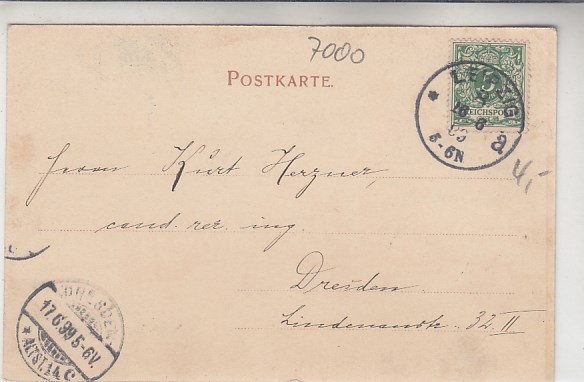 7000
POSTKARTE.
5
REICHSPOST
LEIPZIG
16 6
5-6N
a
4,-
Herrn Kurt Herzner,
cand. rer. ing.
Dresden
Lindenaustr. 32. II
DRESDEN
17.6.99.5-6V.
* ALTST. 14 c